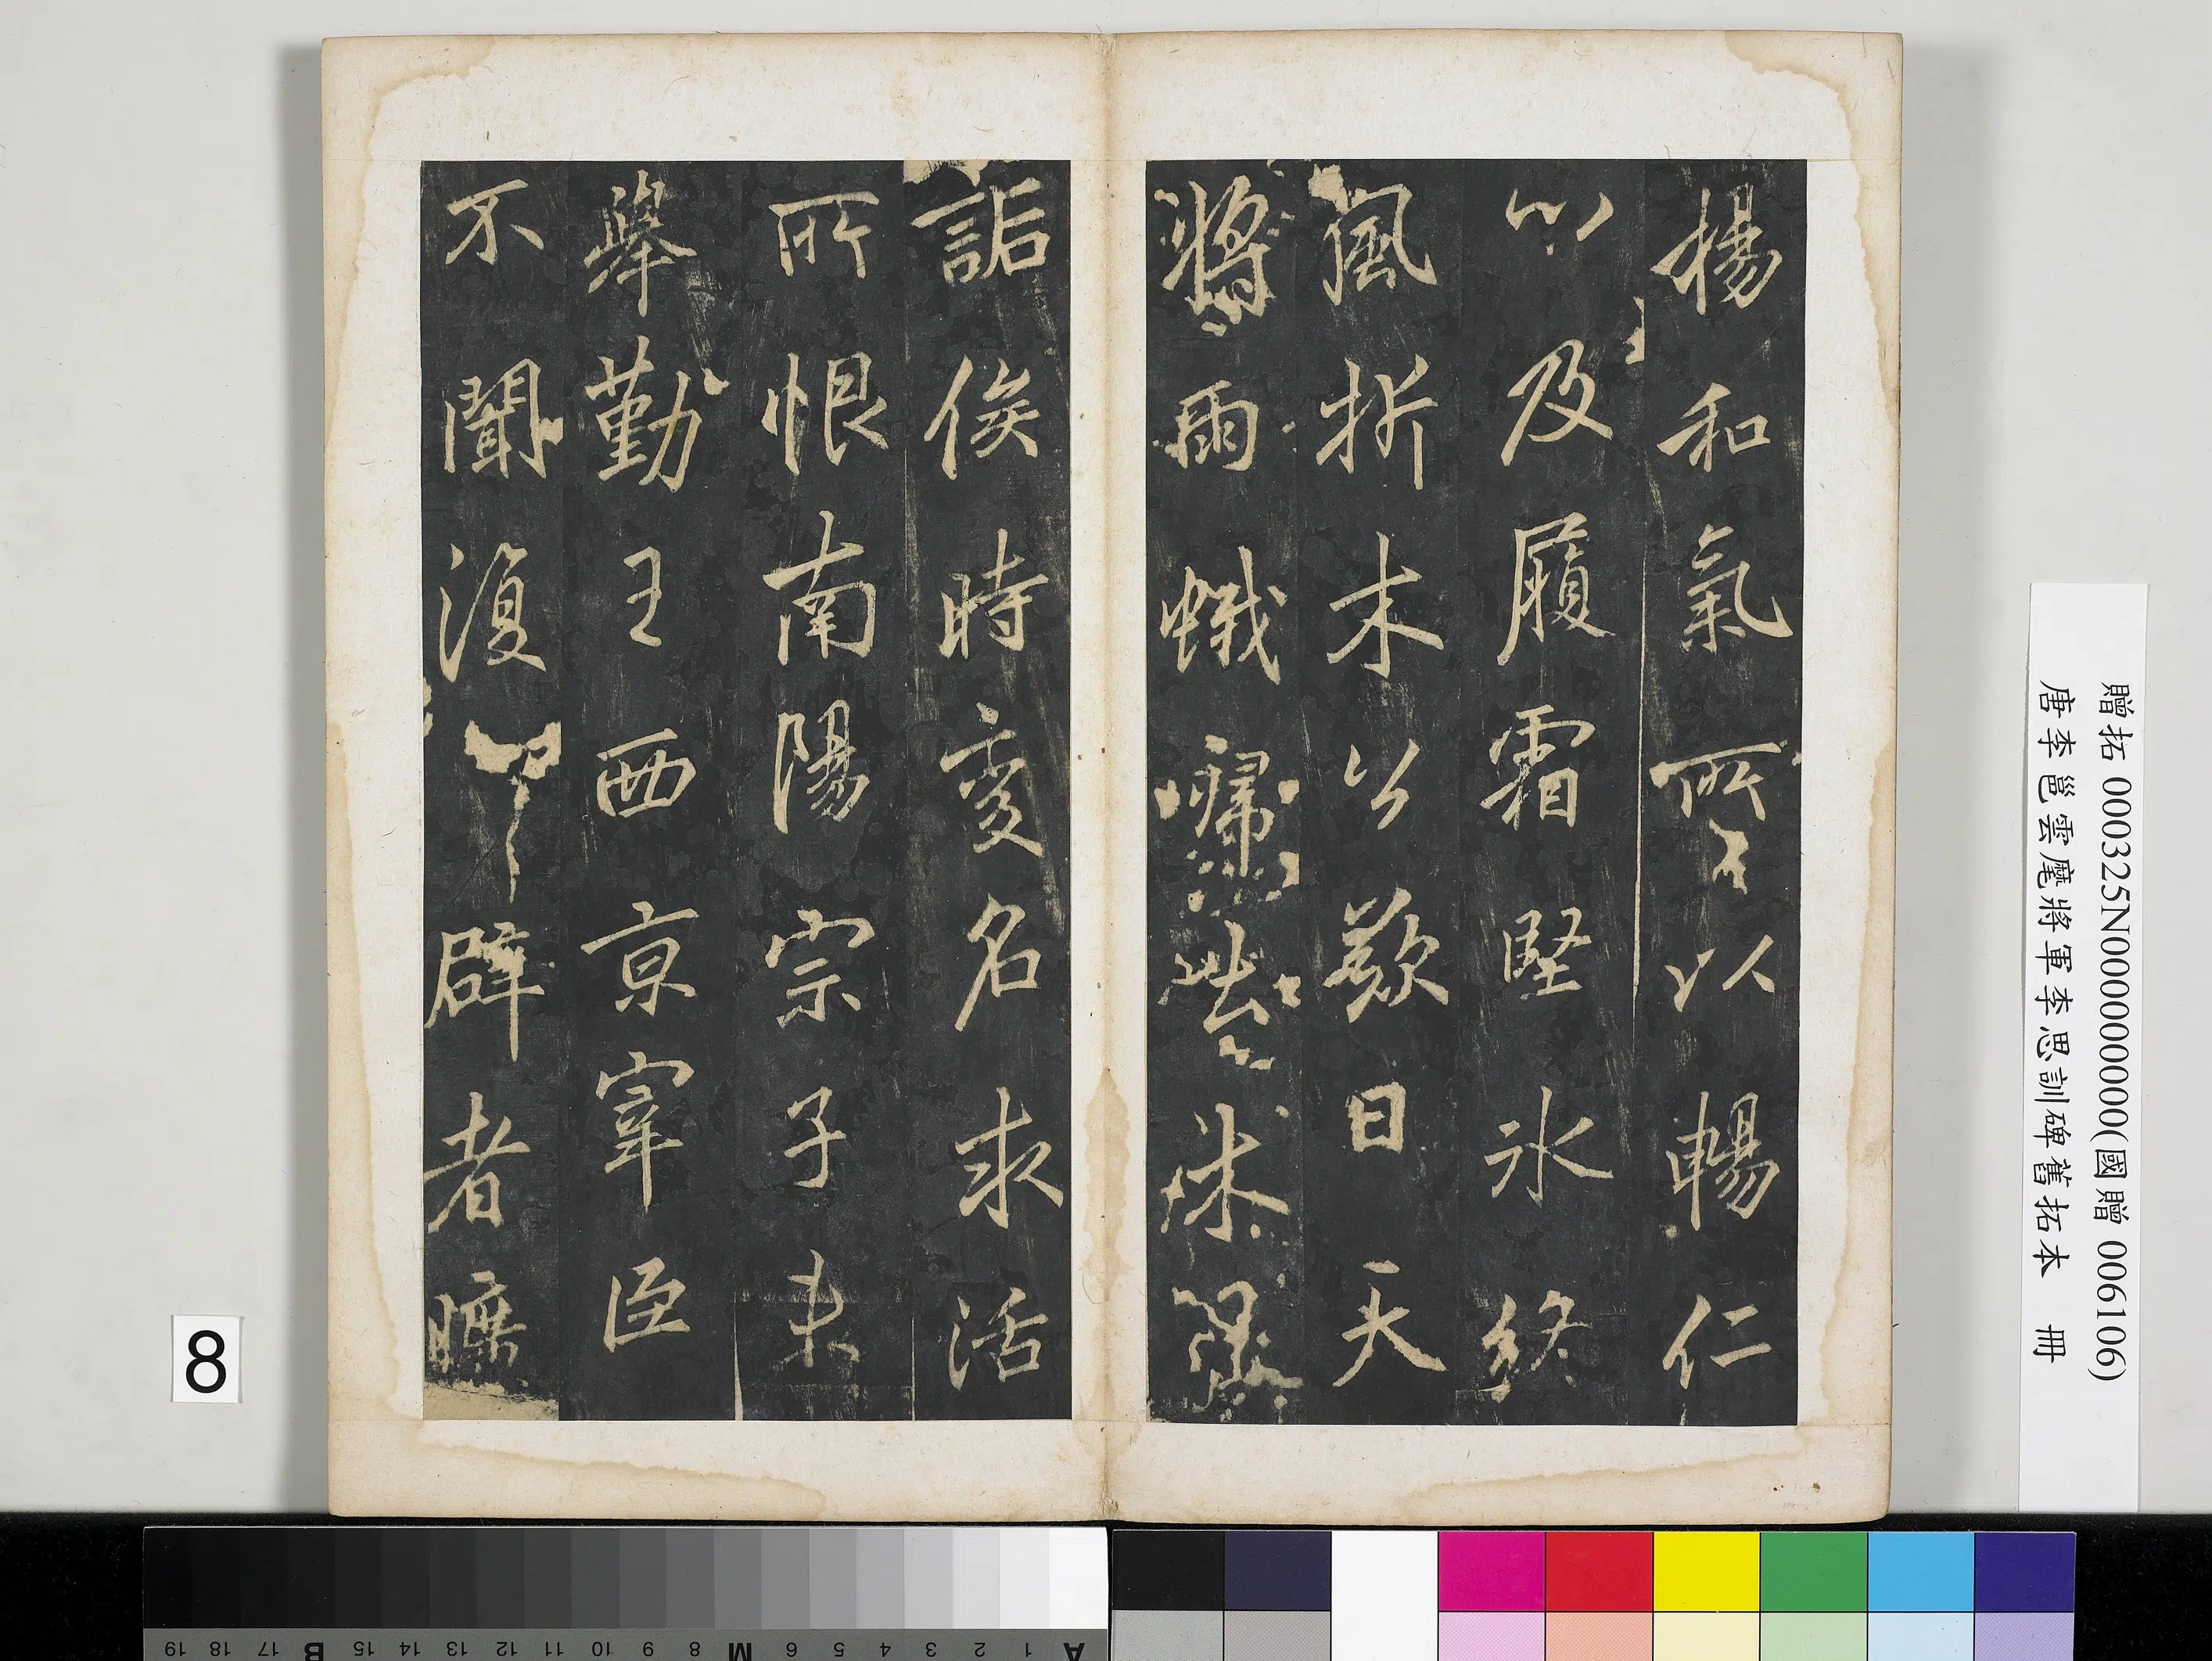 揚和氣所以暢仁
心及履霜堅冰終
風折木公歎曰天
將雨
詬俟時變名求活
所恨南陽宗子未
舉勤王西京宰臣
不聞復辟者曠
贈拓 000325N000000000(國贈 006106)
唐李邕雲麾將軍李思訓碑舊拓本 冊
8
A 1 2 3 4 5 6 M 8 9 10 11 12 13 14 15 B 17 18 19